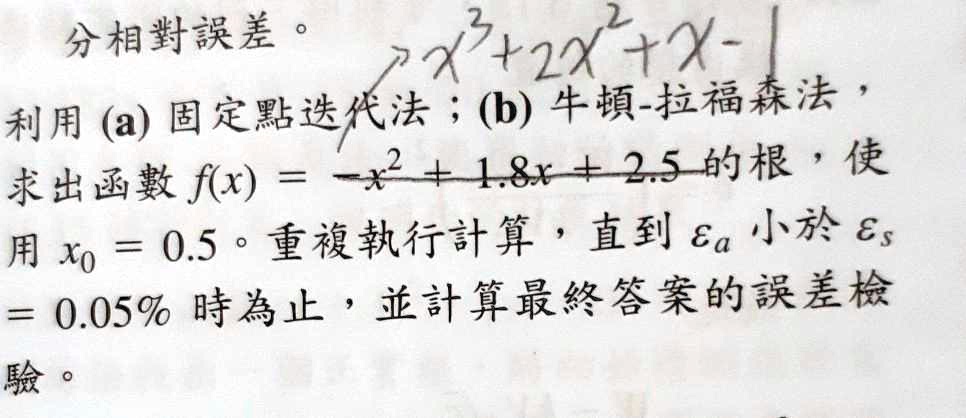 分相對誤差。
x³+2x²+x-1
利用 (a) 固定點迭代法；(b) 牛頓-拉福森法，
求出函數 f(x) = −x² + 1.8x + 2.5 的根，使
用 x₀ = 0.5。重複執行計算，直到 εₐ 小於 εₛ
= 0.05% 時為止，並計算最終答案的誤差檢
驗。